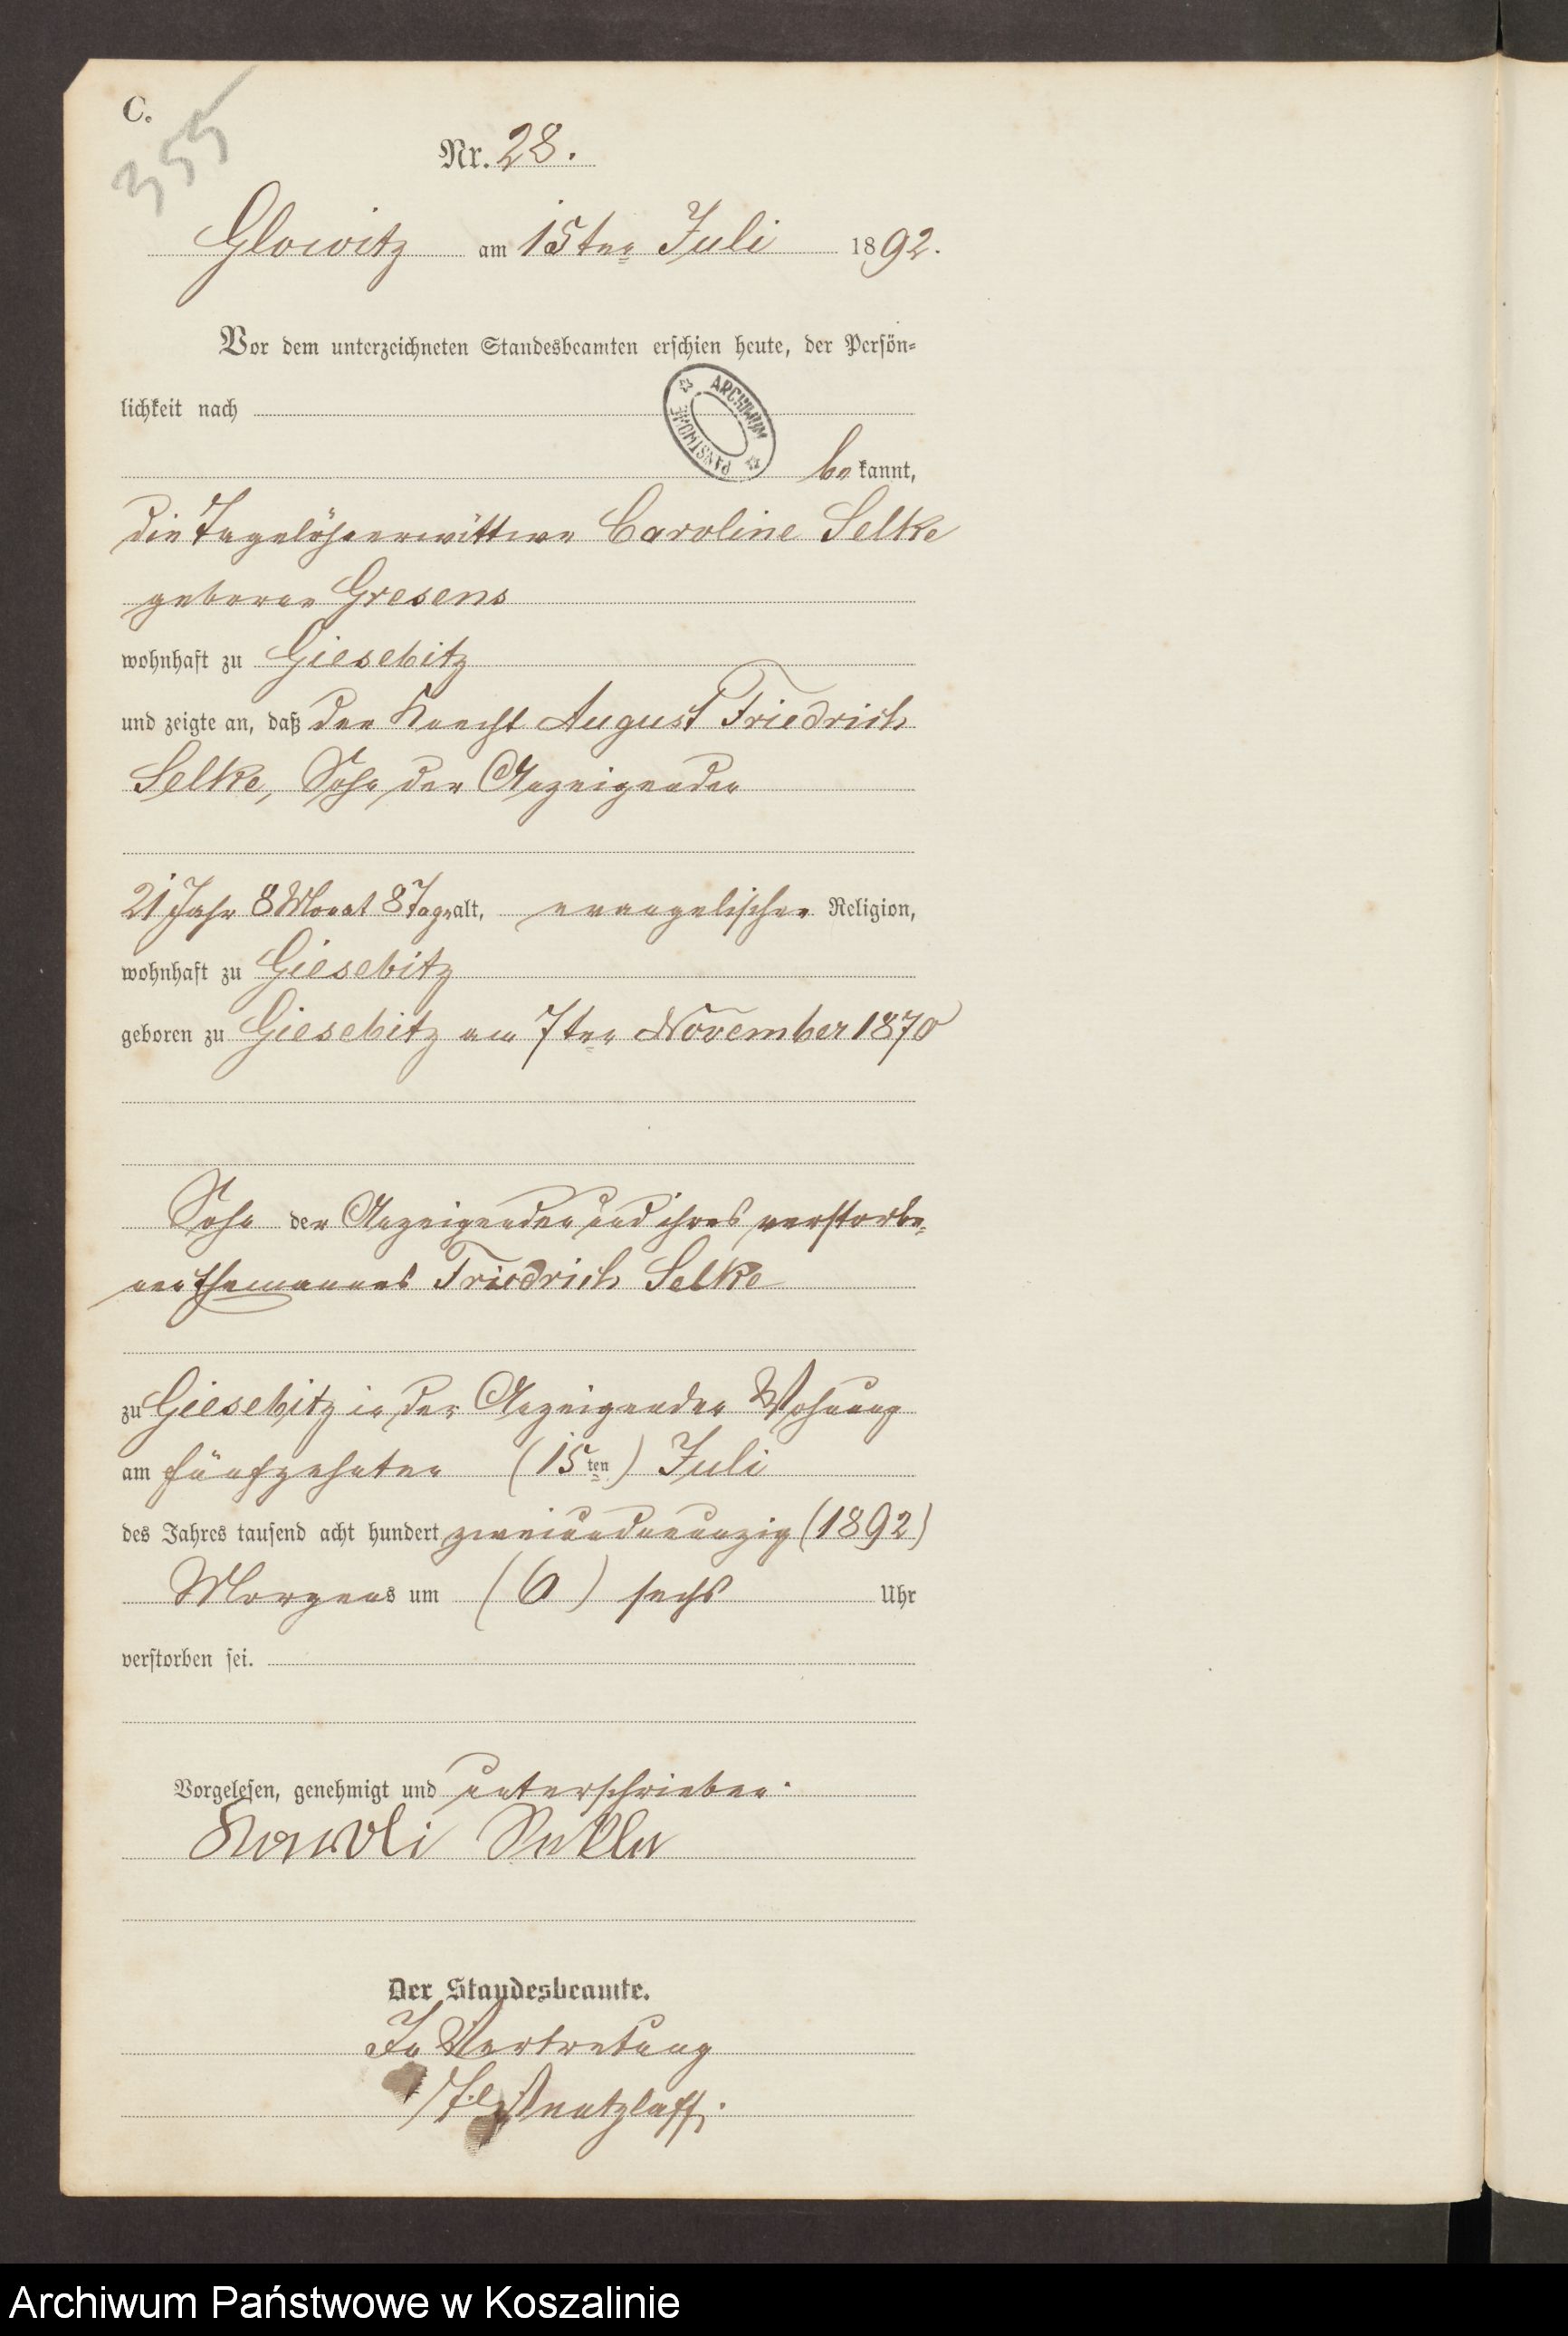 C.
355
Nr. 28.
Glowitz am 15ten Juli 1892.
Vor dem unterzeichneten Standesbeamten erschien heute, der Persön-
lichkeit nach
ARCHIWUM PAŃSTWOWE
bekannt,
die Tagelöhnerwittwe Caroline Selke
geborne Gresens
wohnhaft zu Giesebitz
und zeigte an, daß der Knecht August Friedrich
Selke, Sohn der Anzeigenden
21 Jahr 8 Monat 8 Tage alt, evangelischer Religion,
wohnhaft zu Giesebitz
geboren zu Giesebitz am 7ten November 1870
Sohn der Anzeigenden und ihres verstorbe-
nen Ehemannes Friedrich Selke
zu Giesebitz in der Anzeigenden Wohnung
am fünfzehnten (15ten) Juli
des Jahres tausend acht hundert zweiundneunzig (1892)
Morgens um (6) sechs Uhr
verstorben sei.
Vorgelesen, genehmigt und unterschrieben.
Der Standesbeamte.
In Vertretung
Archiwum Państwowe w Koszalinie